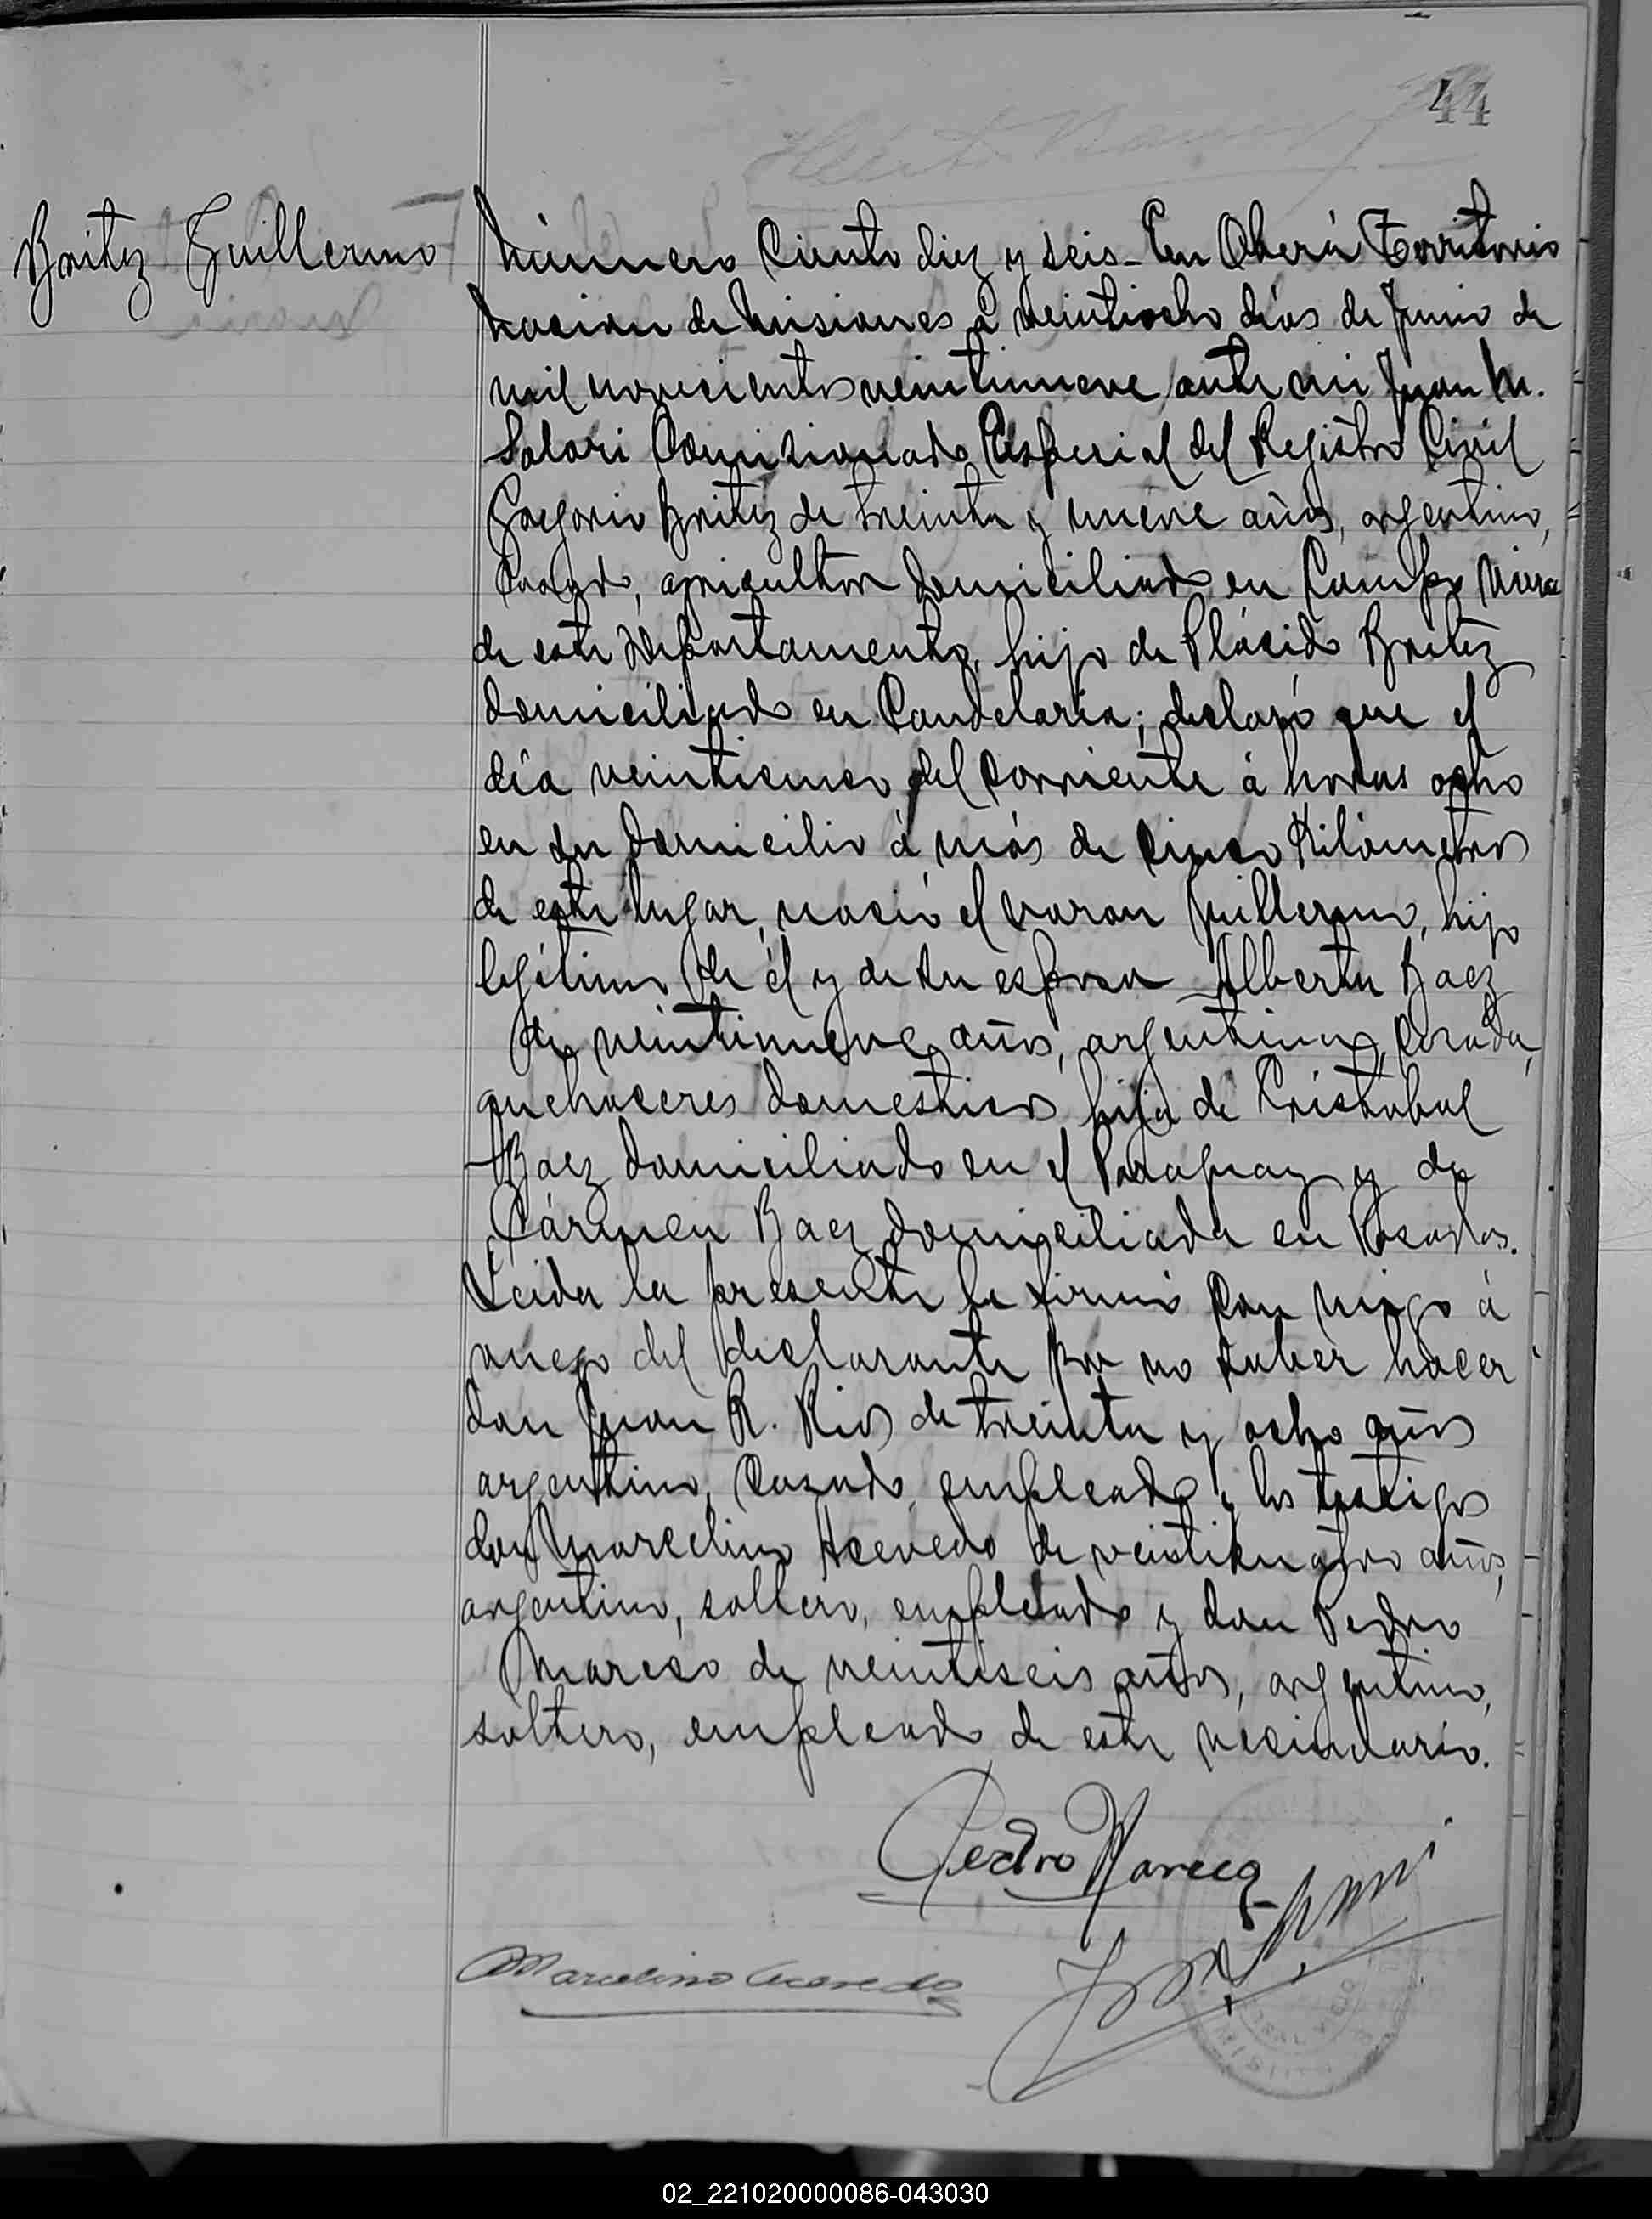 44
Britez Guillermo
Número Ciento diez y seis - En Oberá Territorio
Nacion de Misiones á veintiocho dias de Junio de
mil novecientos veintinueve ante mi Juan M.
Solari Comisionado Especial del Registro Civil
Gregorio Britez de treinta y nueve años, argentino,
Casado, agricultor domiciliado en Campo Viera
de este Departamento, hijo de Plácido Britez
domiciliado en Candelaria; declaró que el
día veinticinco del corriente á horas ocho
en su domicilio á más de cinco Kilómetros
de este lugar, nació el varon Guillermo, hijo
legítimo de él y de su esposa Alberta Baez
de veintinueve años, argentina, Casada,
quehaceres domesticos hija de Cristobal
Baez domiciliado en el Paraguay y de
Cármen Baez domiciliada en Posadas.
Leida la presente la firmó con migo á
ruego del declarante por no saber hacer
don Juan R. Rios de treinta y ocho años
argentino, Casado, empleado y los testigos
don Marcelino Acevedo de veinticuatro años,
argentino, soltero, empleado y don Pedro
de veintiseis años, argentino,
soltero, empleado de este vecindario.
Pedro
Marcelino Acevedo
02_221020000086-043030